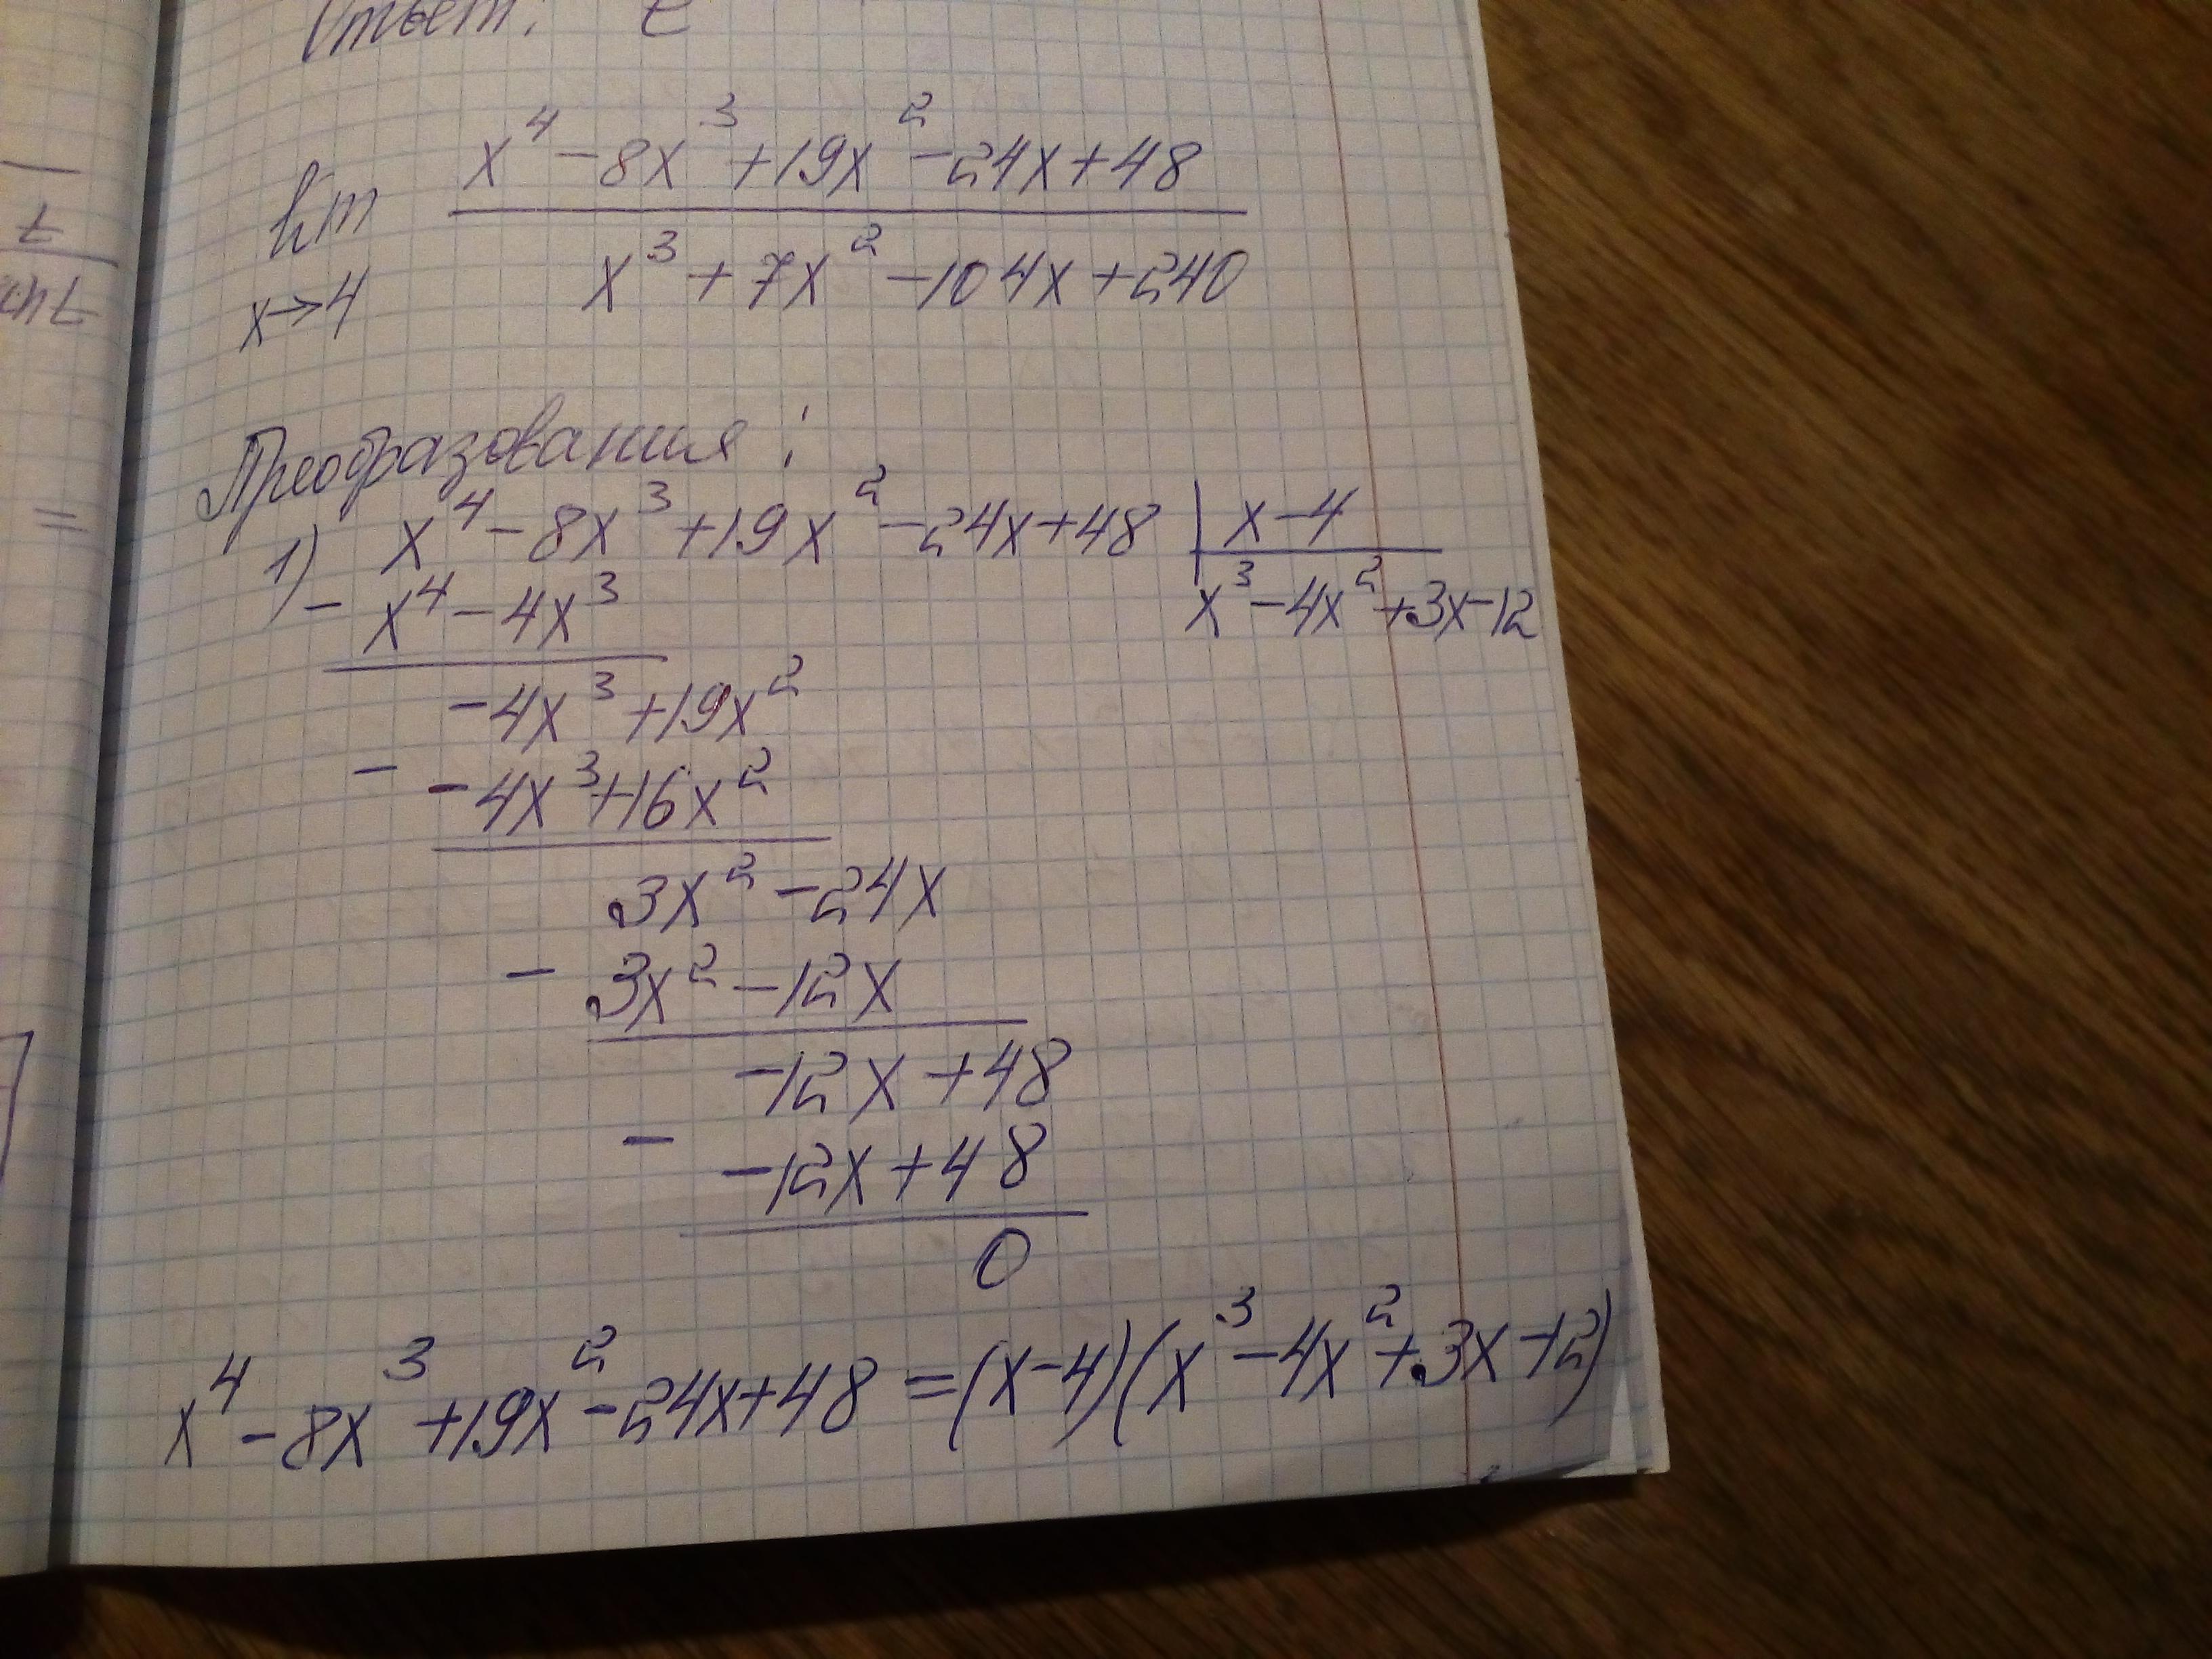 Ответ:
lim x→4 (x⁴-8x³+19x²-24x+48)/(x³+7x²-104x+240)
Преобразования:
1) x⁴-8x³+19x²-24x+48 | x-4
- x⁴-4x³ | x³-4x²+3x-12
-4x³+19x²
- -4x³+16x²
3x²-24x
- 3x²-12x
-12x+48
- -12x+48
0
x⁴-8x³+19x²-24x+48=(x-4)(x³-4x²+3x-12)